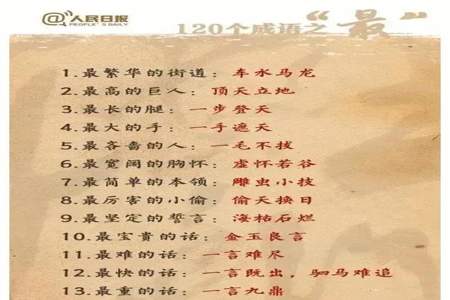 @人民日报
PEOPLE'S DAILY
120个成语之“最”
1.最繁华的街道：车水马龙
2.最高的巨人：顶天立地
3.最长的腿：一步登天
4.最大的手：一手遮天
5.最吝啬的人：一毛不拔
6.最宽阔的胸怀：虚怀若谷
7.最简单的本领：雕虫小技
8.最厉害的小偷：偷天换日
9.最坚定的誓言：海枯石烂
10.最宝贵的话：金玉良言
11.最难的话：一言难尽
12.最快的话：一言既出，驷马难追
13.最重的话：一言九鼎